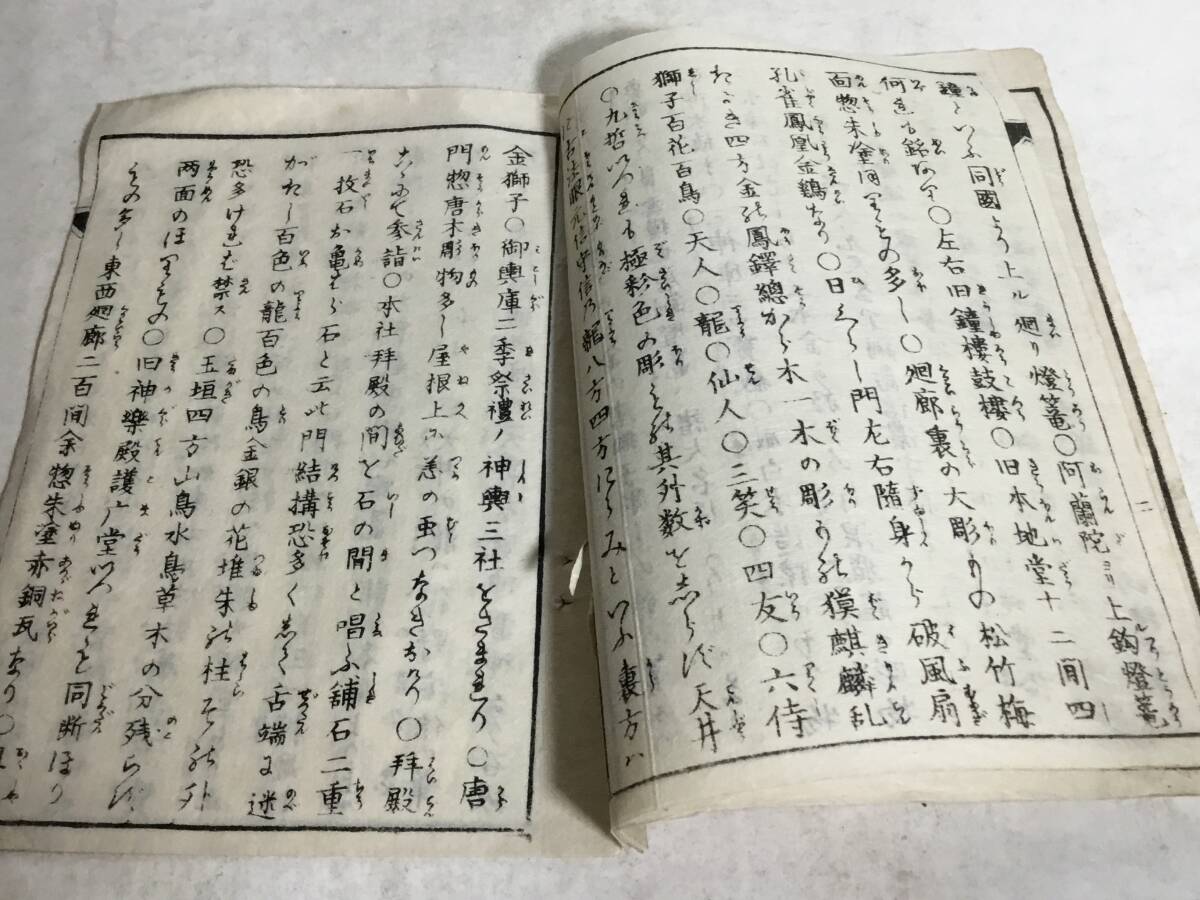 鐘といふ同國より上ル廻り燈篭〇阿蘭陀ヨリ上鈎燈篭
何れも銘あり〇左右旧鐘樓鼓樓〇旧本地堂十二間四
面惣朱塗
の多し〇廻廊裏の大彫ものの松竹梅
孔雀鳳凰金鶏あり〇日ぐらし門左右隨身から破風扇
たるき四方金の鳳鐸總から木一木の彫もの獏麒麟乱
獅子百花百鳥〇天人〇龍〇仙人〇三笑〇四友〇六侍
〇九哲いづれも極彩色の彫もの其外数をしらず天井
古法眼元信守信乃龍八方四方にらみといふ裏方ハ
金獅子〇御輿庫二季祭禮ノ神輿三社をさまれり〇唐
門惣唐木彫物多し屋根上に恙の虫つなぎあり〇拜殿
こゝにて参詣〇本社拜殿の間を石の間と唱ふ舗石二重
一枚石
石と云此門結構恐多くして舌端に述
がたし百色の龍百色の鳥金銀の花堆朱の柱
の外
恐多ければ禁ス〇玉垣四方山鳥水鳥草木の分残らず
両面のほりもの〇旧神樂殿護广堂いづれも同断ほり
もの多し東西廻廊二百間余惣朱塗赤銅瓦なり〇